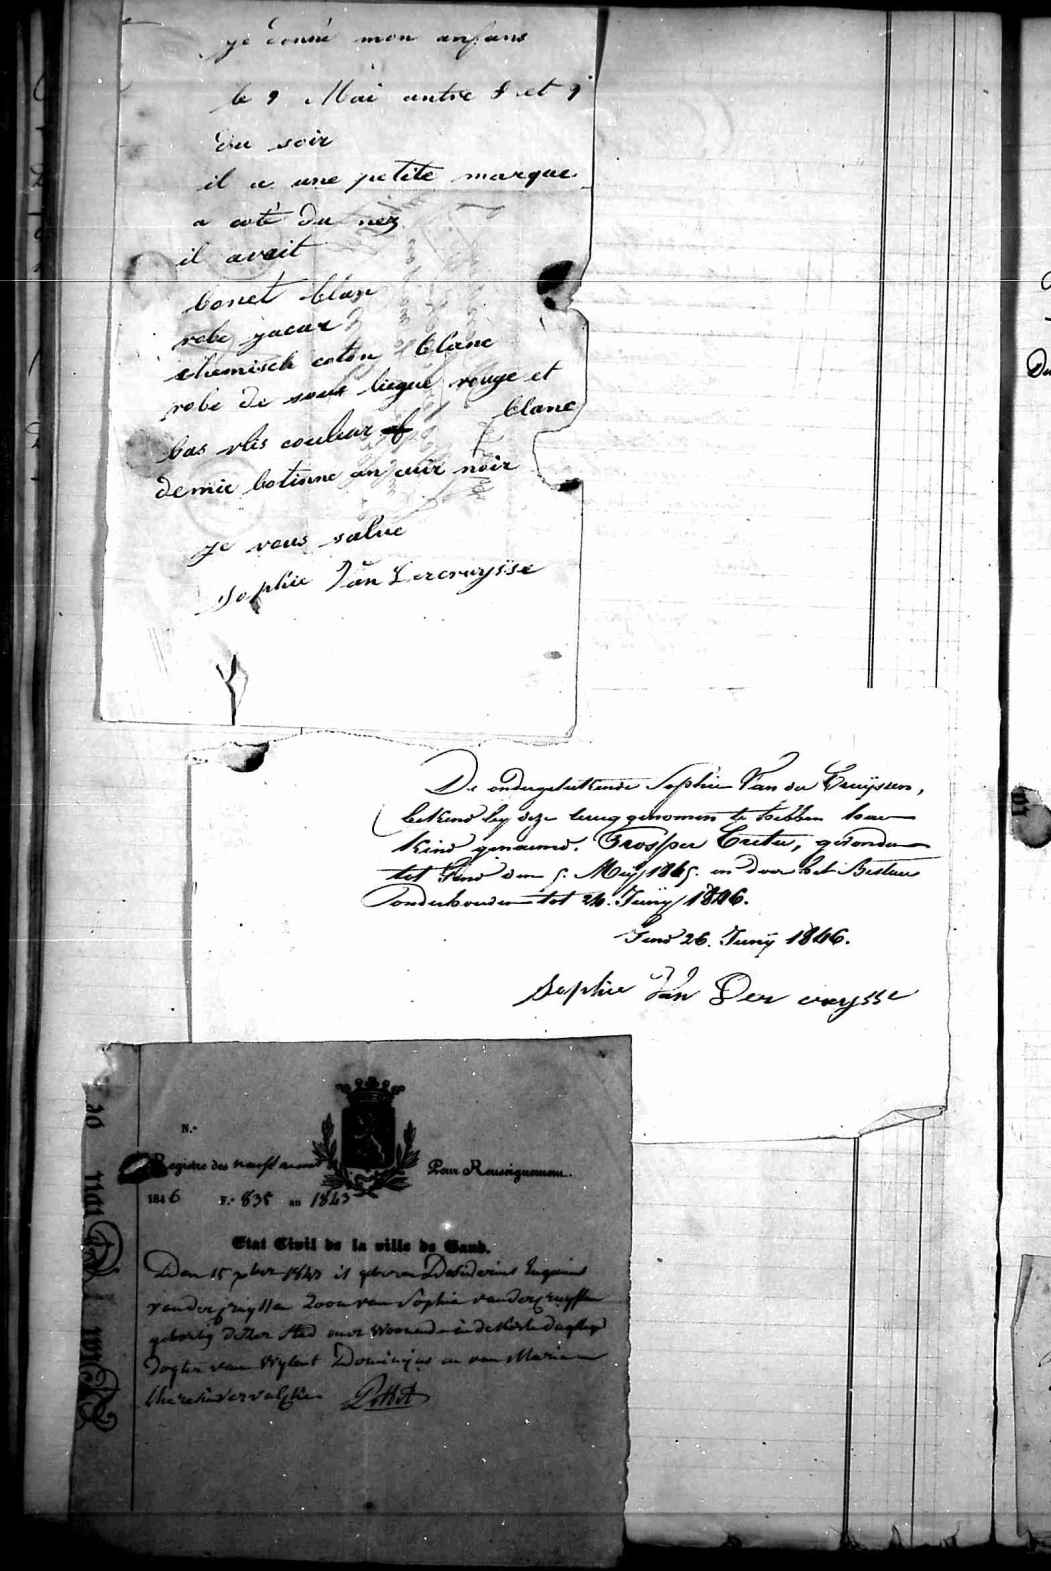 je donné mon anfans
le 9 Mai antre 8 et 9
du soir
il a une petite marque
a coté du nez
il avait
bonet blan
robe jacar
chemisch coton blanc
robe de sous liegue rouge et
blanc
bas vlis couleur
demie botinne an cuir noir
je vous salue
Sophie Van Dercruÿsse
De ondergeteekende Sophie Van der Cruÿssen,
bekend by deze terug genomen te hebben haer
kind genaemd. Prosper Cretu, gevonden
tot Gend den 9. Meÿ 1845. en door het Bestuer
onderhouden tot 26. Junÿ 1846.
Gend 26. Junÿ 1846.
Sophie Van Der cruysse
N.°
Registre des naissances
Pour Renseignement.
1846 N.° 835 an 1843
Etat Civil de la ville de Gand.
Den 15 1843 is geboren Desiderius Eugenius
vander Zoon van Sophie vander
geboortig dezer Stad
Dogter van Dominicus en van Maria